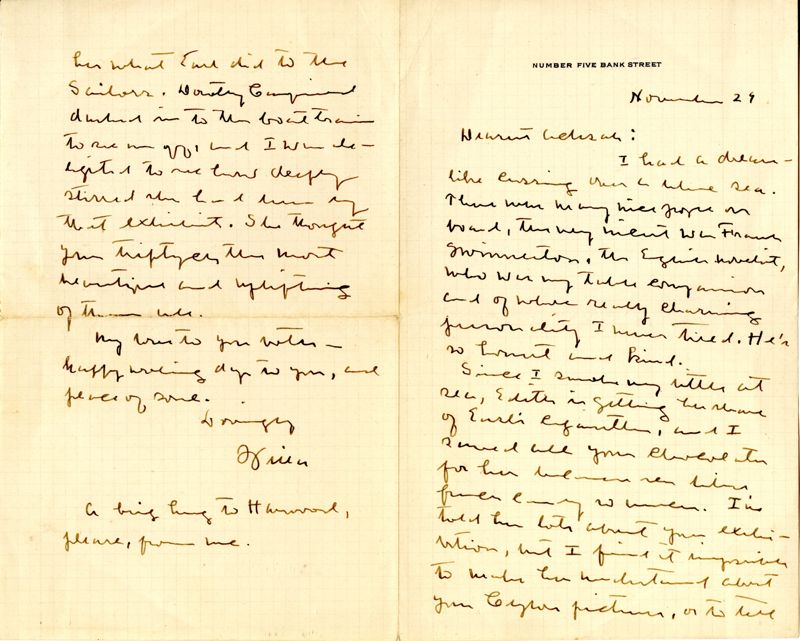 NUMBER FIVE BANK STREET
November 29
Dearest Achsah:
I had a dream-
like crossing over a blue sea.
There were many nice people on
board, the very nicest was Frank
Swinnerton, the English novelist,
who was my table companion
and of whose really charming
personality I never tired. He's
so honest and kind.
Since I smoke very little at
sea, Edith is getting her share
of Earl's cigarettes, and I
saved all your chocolates
for her because she likes
French candy so much. I've
told her lots about your exhi-
bition, but I find it impossible
to make her understand about
your Ceylon pictures, or to tell
her what Earl did to the
Sailors. Dorothy
dashed in to the boat train
to see me off, and I was de-
lighted to see how deeply
stirred she had been by
that exhibit. She thought
your triptych the most
beautiful and uplifting
of them all.
My love to you both —
happy working days to you, and
peace of soul.
Lovingly
Willa
A big hug to Harwood,
please, from me.